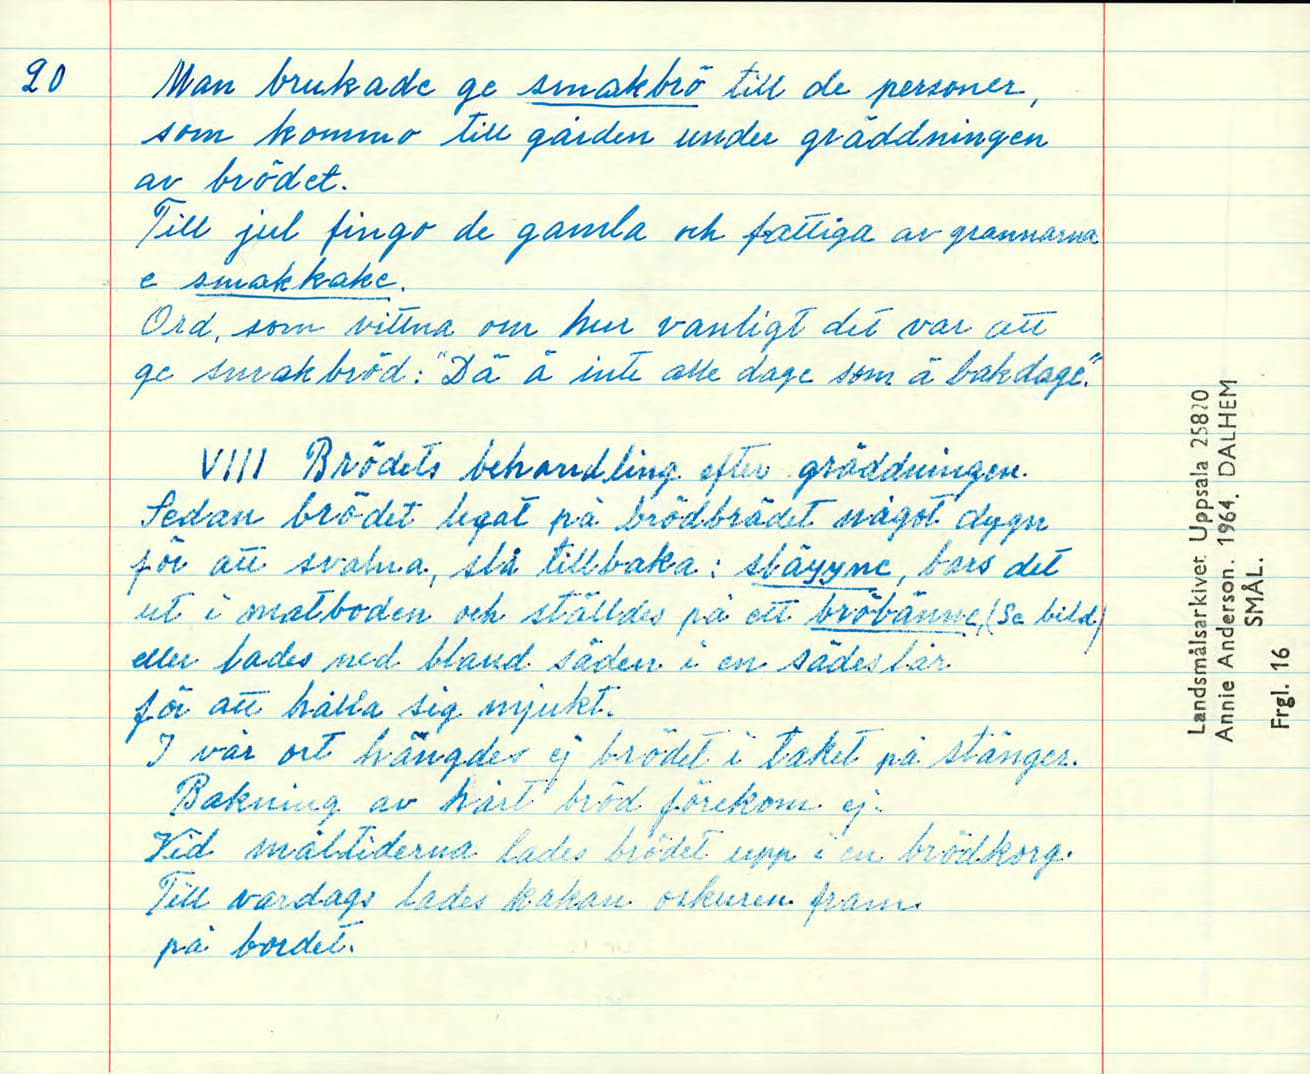 20
Man brukade ge smakbrö till de personer,
som kommo till gården under gräddningen
av brödet.
Till jul fingo de gamla och fattiga av grannarna
e smakkake.
Ord, som vittna om hur vanligt det var att
ge smakbröd: "Dä ä inte alle dage som ä bakdage."
VIII Brödets behandling efter gräddningen.
Sedan brödet legat på brödbrädet något dygn
för att svalna, slå tillbaka: , bars det
ut i matboden och ställdes på ett bröbänne, (Se bild)
eller lades ned bland säden i en sädeslår
för att hålla sig mjukt.
I vår ort hängdes ej brödet i taket på stänger.
Bakning av hårt bröd förekom ej.
Vid måltiderna lades brödet upp i en brödkorg.
Till vardags lades kakan oskuren fram
på bordet.
Landsmålsarkivet Uppsala 25820
Annie Anderson. 1964. DALHEM
SMÅL.
Frgl. 16